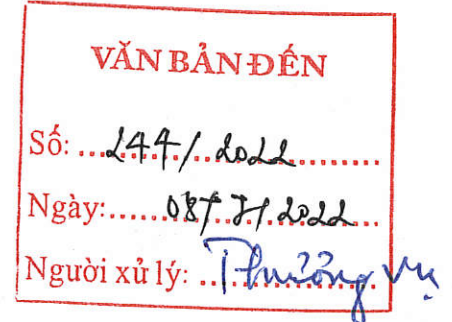 VĂN BẢN ĐẾN
Số: 244/2022
Ngày: 08/7/2022
Người xử lý: Thường vụ